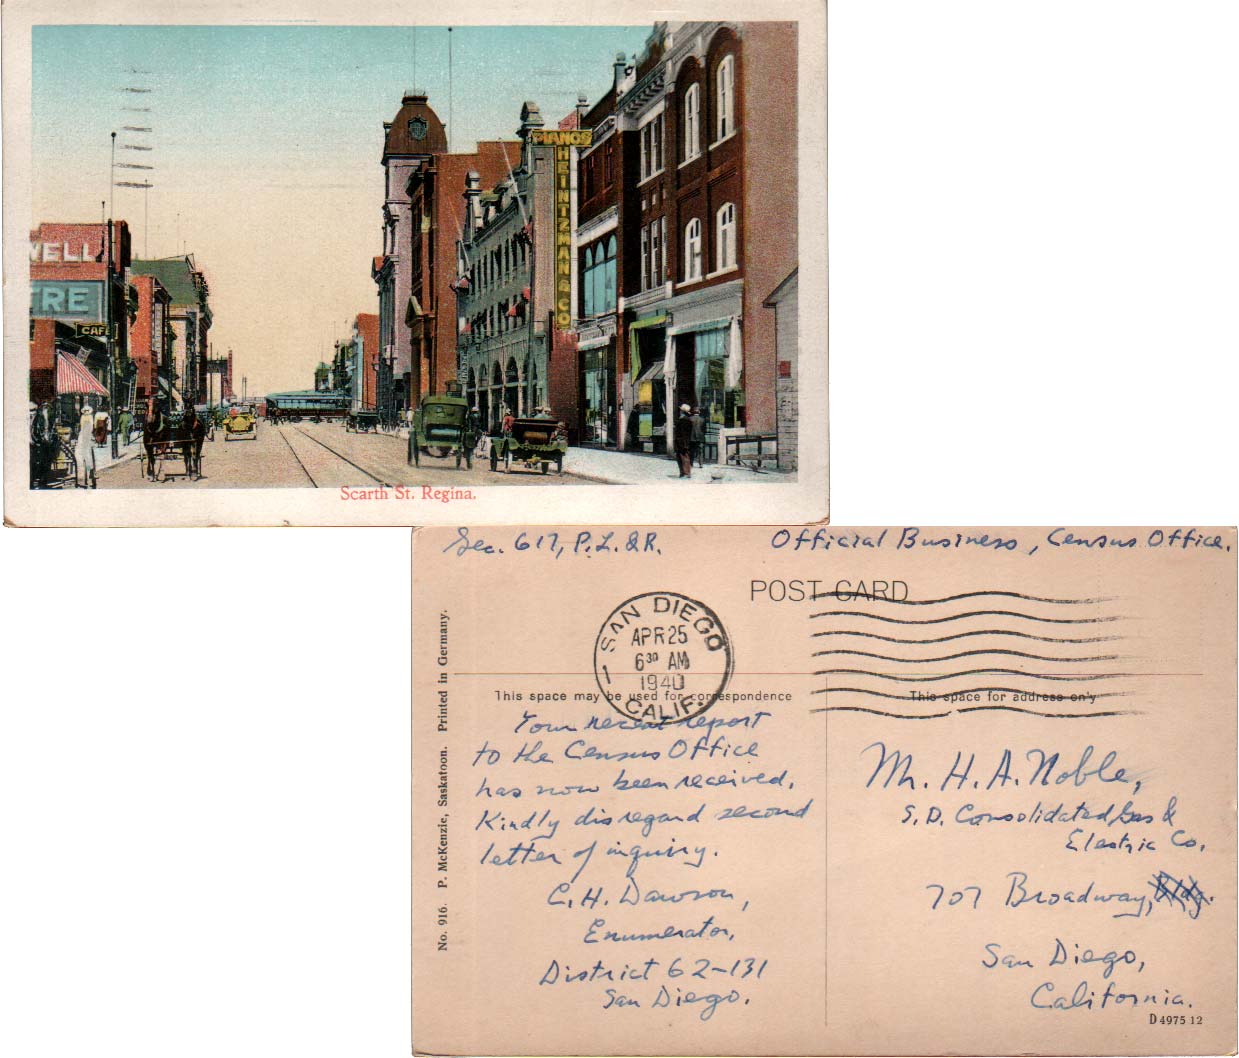 WELL
RE
CAFE
PIANOS
HEINTZMAN & CO
Scarth St. Regina.
Sec. 617, P.L. & R.
Official Business, Census Office.
POST CARD
SAN DIEGO
APR 25
6 30 AM
1940
1
CALIF.
This space may be used for correspondence
This space for address only
No. 916. P. McKenzie, Saskatoon. Printed in Germany.
Your recent report
to the Census Office
has now been received.
Kindly disregard second
letter of inquiry.
C. H. Dawson,
Enumerator,
District 62-131
San Diego.
Mr. H. A. Noble,
S. D. Consolidated Gas &
Electric Co.
707 Broadway, Bldg.
San Diego,
California.
D 4975 12